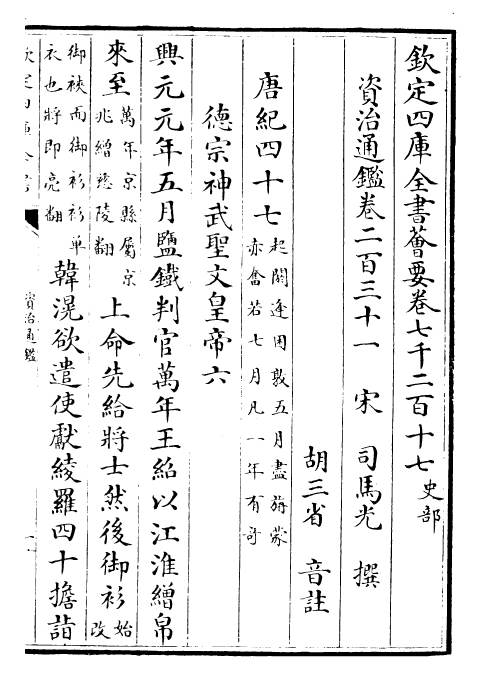 欽定四庫全書薈要卷七千二百十七 史部
資治通鑑卷二百三十一 宋 司馬光 撰
胡三省 音註
唐紀四十七 起閼逢困敦五月盡旃蒙
亦奮若七月凡一年有奇
德宗神武聖文皇帝六
興元元年五月鹽鐵判官萬年王紹以江淮繒帛
來至 萬年京縣屬京
兆繒慈陵翻 上命先給將士然後御衫 始
改
御裌而御衫衫單
衣也將即亮翻 韓滉欲遣使獻綾羅四十擔詣
資治通鑑